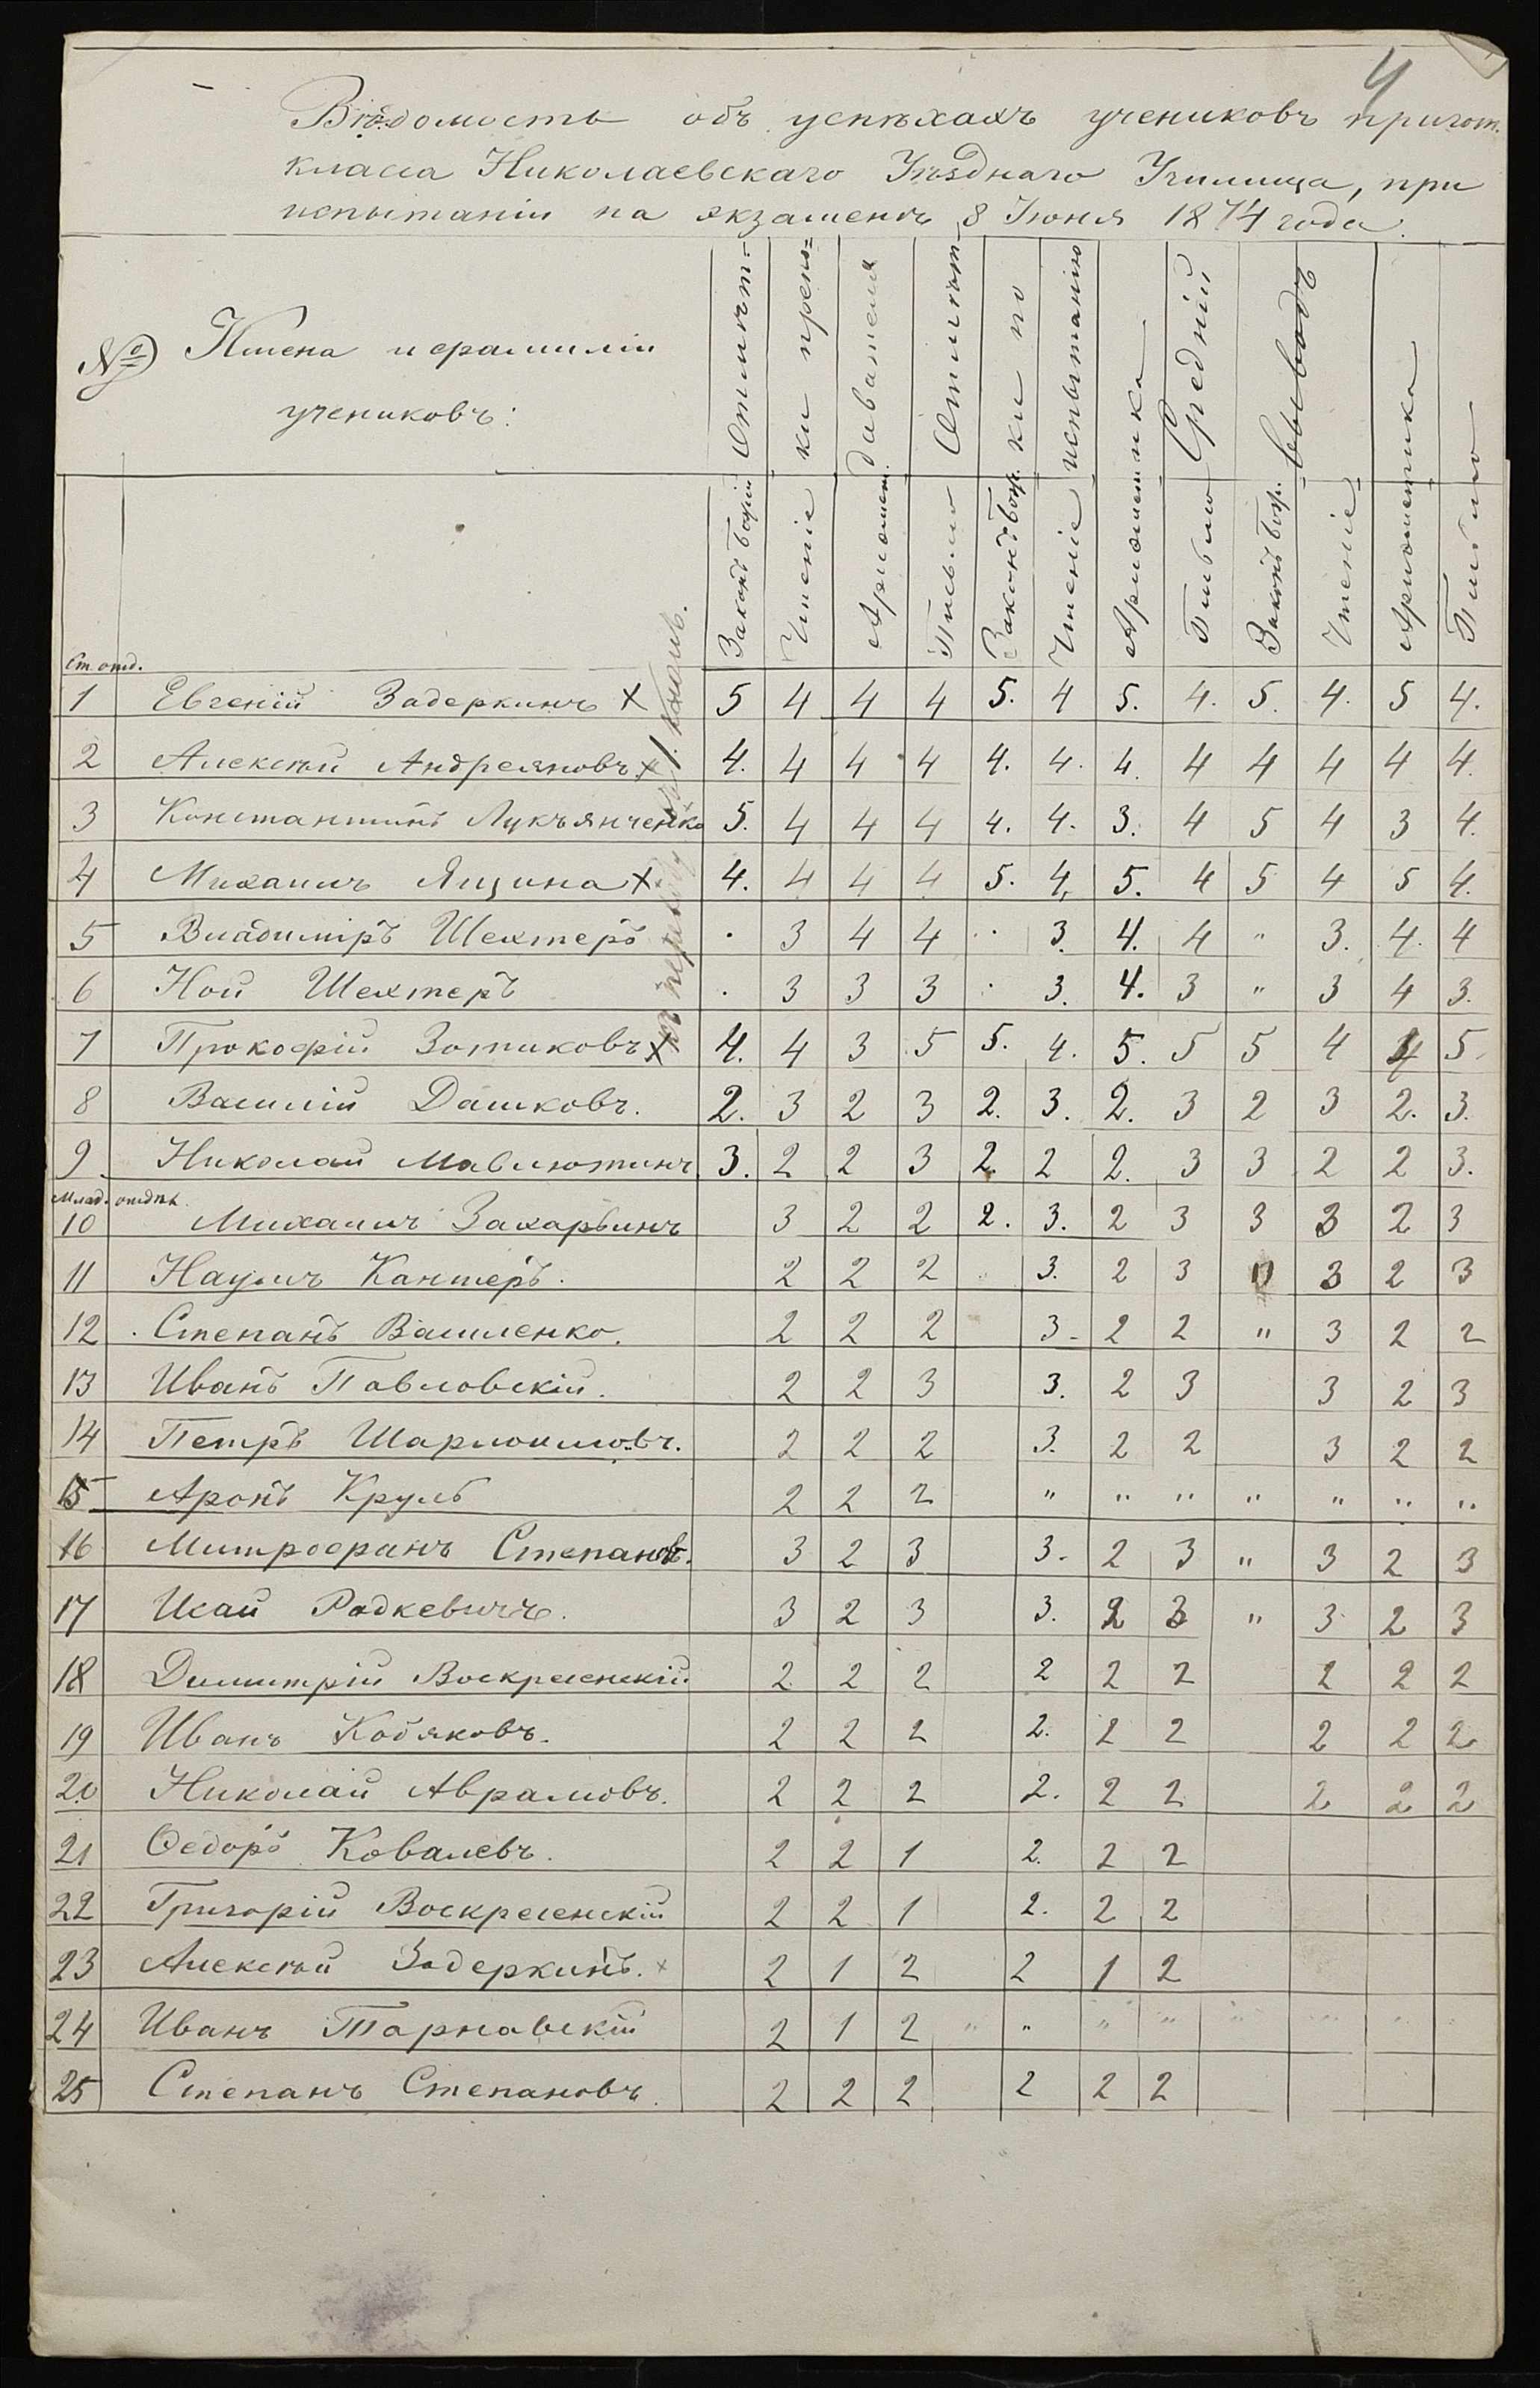 4
Вѣдомость объ успѣхахъ учениковъ пригот.
класса Николаевскаго Уѣзднаго Училища, при
испытаніи на экзаменѣ 8 Іюня 1874 года.
№ Имена и фамиліи
учениковъ:
Отмѣт-
ки препо-
давателя
Отмѣт-
ки по
испытанію
Средній
выводъ
Законъ Божій
Чтеніе
Ариѳмет.
Письмо
Законъ Бож.
Чтеніе
Ариѳметика
Письмо
Законъ Бож.
Чтеніе
Ариѳметика
Письмо
Ст. отд.
1 Евгеній Задеркинъ х 5 4 4 4 5. 4 5. 4. 5. 4. 5 4.
2 Алексѣй Андреяновъ х 4. 4 4 4 4. 4. 4. 4 4 4 4 4.
3 Константинъ Лукъянченко 5. 4 4 4 4. 4. 3. 4 5 4 3 4.
4 Михаилъ Ящина х 4. 4 4 4 5. 4. 5. 4 5 4 5 4.
5 Владиміръ Шехтеръ . 3 4 4 . 3. 4. 4 " 3. 4. 4
6 Ной Шехтеръ . 3 3 3 . 3. 4. 3 " 3 4 3.
7 Прокофій Зотиковъ х 4. 4 3 5 5. 4. 5. 5 5 4 4 5.
8 Василій Дашковъ. 2. 3 2 3 2. 3. 2. 3 2 3 2. 3.
9 Николай Мавлютинъ 3. 2 2 3 2. 2 2. 3 3 2 2 3.
Млад. отдѣл.
10 Михаилъ Захарьинъ 3 2 2 2. 3. 2 3 3 3 2 3
11 Наумъ Канторъ. 2 2 2 3. 2 3 " 3 2 3
12 Степанъ Василенко. 2 2 2 3. 2 2 " 3 2 2
13 Иванъ Павловскій. 2 2 3 3. 2 3 3 2 3
14 Петръ 2 2 2 3. 2 2 3 2 2
15 Аронъ Круль 2 2 2 " " " " " " "
16 Митрофанъ Степановъ. 3 2 3 3. 2 3 " 3 2 3
17 Исай Радкевичъ. 3 2 3 3. 2 3 " 3 2 3
18 Димитрій Воскресенскій 2 2 2 2 2 2 2 2 2
19 Иванъ Кобяковъ. 2 2 2 2. 2 2 2 2 2
20 Николай Аврамовъ. 2 2 2 2. 2 2 2 2 2
21 Ѳедоръ Ковалевъ. 2 2 1 2. 2 2
22 Григорій Воскресенскій 2 2 1 2. 2 2
23 Алексѣй Задеркинъ. х 2 1 2 2 1 2
24 Иванъ Тарнавскій 2 1 2 " " " " " " " "
25 Степанъ Степановъ. 2 2 2 2 2 2